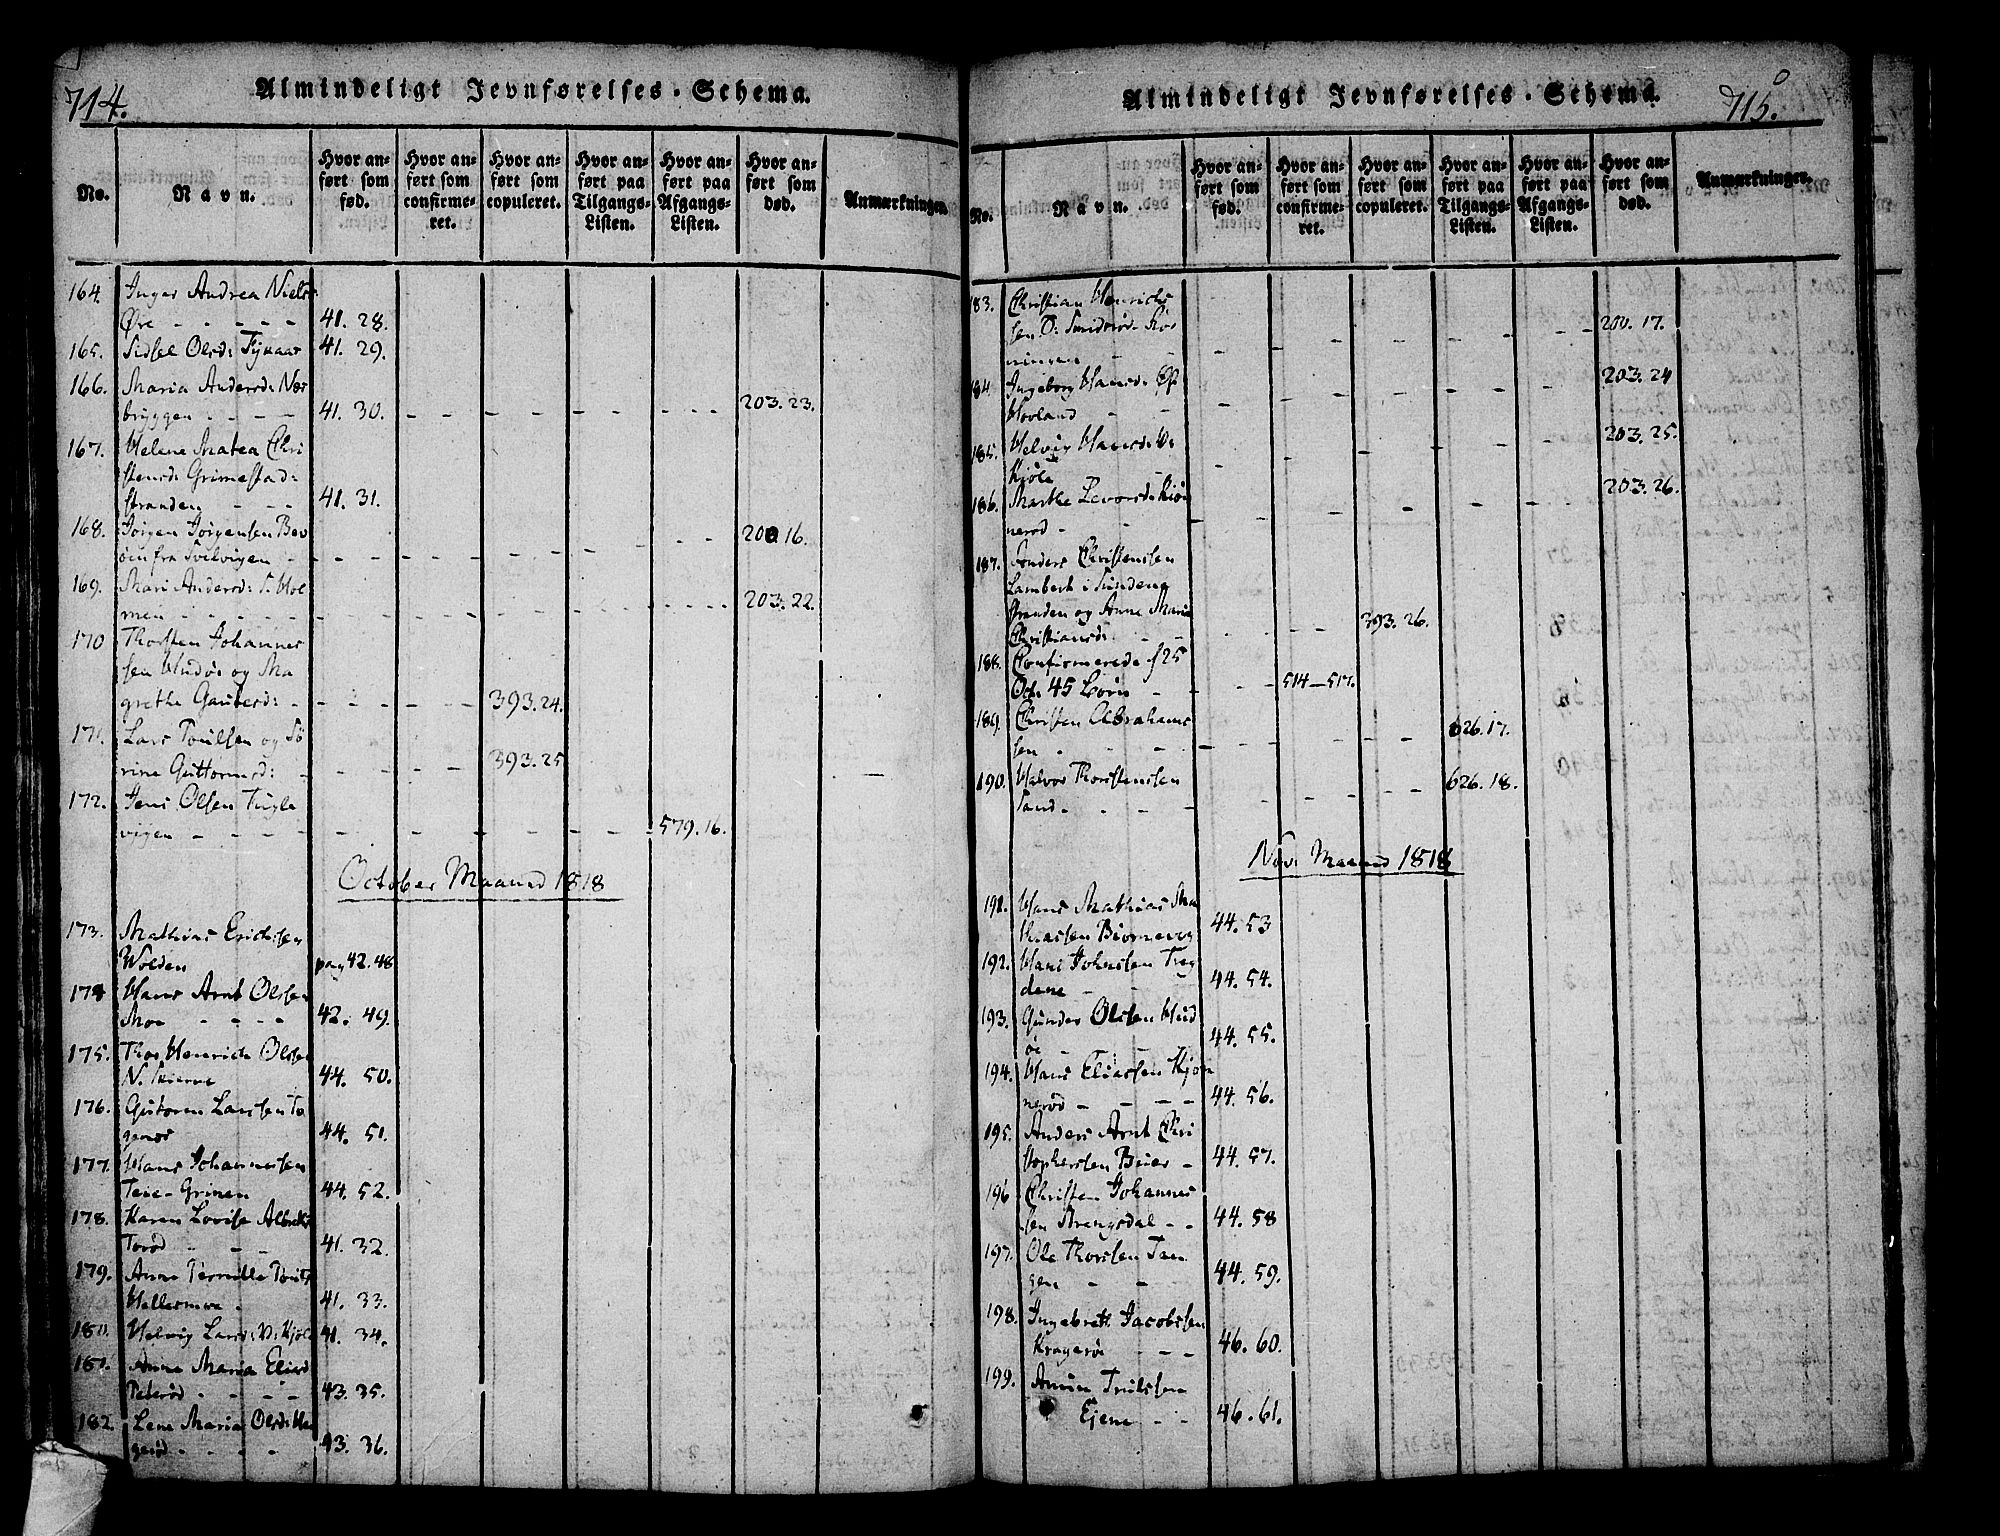 714.
Almindeligt Jevnførelses-Schema.
No.
Navn.
Hvor an-
ført som
fød.
Hvor an-
ført som
confirme-
ret.
Hvor an-
ført som
copuleret.
Hvor an-
ført paa
Tilgangs-
Listen.
Hvor an-
ført paa
Afgangs-
Listen.
Hvor an-
ført som
død.
Anmærkninger.
164. Inger Andrea Niels
Øre - - - - - 41. 28.
165. Sidsel Olsd: 41. 29.
166. Maria Andersd: Nær
bryggen - - - - 41. 30. - - - - - - - 203. 23.
167. Helene Matea Chri
stensd: Grimestad:
stranden - - - 41. 31.
168. Jørgen Jørgensen Bev
øen fra Svelvigen - - - - - - - 200 16.
169. Mari Andersd: S. Hol
men - - - - - - - - 203. 22.
170 Thorsten Johannes
sen Hudøe og Ma
grethe Gutersd: - - - - - 393. 24.
171. Lars Poulsen og Sø
rine Guttormsd: - - - - 393. 25
172. Jens Olsen
vigen - - - - - - - 579. 16.
October Maaned 1818
173. Mathias Erichsen
Wolden pag 42. 48
174 Hans Arnt Olsen
Moe - - - - 42. 49.
175. Thor Henrich Olsen
N. Skierve 44. 50.
176. Gutorm Larssen To
genæs 44. 51.
177. Hans Johannessen
Teie-Grinen 44. 52.
178. Karen Lovise Albretsd
Torød - - - 41. 32.
179. Anne Pernille Poulsd
Hellesmoe - 41. 33.
180. Helvig Larsd: V: Kjøle 41. 34.
181. Anne Maria Eliesd
Peterød - - - - 43. 35.
182. Lene Maria Olsd: Ha
gerød - - - - 43. 36.
715.
Almindeligt Jevnførelses-Schema.
No.
Navn.
Hvor an-
ført som
fød.
Hvor an-
ført som
confirme-
ret.
Hvor an-
ført som
copuleret.
Hvor an-
ført paa
Tilgangs-
Listen.
Hvor an-
ført paa
Afgangs-
Listen.
Hvor an-
ført som
død.
Anmærkninger.
183. Christian Henrichs
sen Ø: Smidsrød- 200. 17.
184. Ingeborg Hansd: Ø:
Hovland - - 203. 24
185. Helvig Hansd: V:
Kjøle 203. 25.
186. Marthe Levorsd:
nerød - - 203. 26.
187. Anders Christenssen
Lambech i Sundene
stranden og Anne Marie
Christiansd: - - 393. 26.
188. Confirmerede d 25
Oct: 45 Børn - - - - 514-517.
189. Christen Abrahams
sen - - - - - 626. 17.
190. Halvor Thorstenssen
Sand - - - - 626. 18.
Nov: Maaned 1818
191. Hans Mathias Ma
thiassen Biørnevog 44. 53
192. Hans Johnssen Treg
dene - - - 44. 54.
193. Gunder Olsen Hud
øe - - 44. 55.
194. Hans Eliassen Kjøn
nerød - - - - 44. 56.
195. Anders Arnt Chri
stophersen Buer - 44. 57.
196 Christen Johannes
sen Strengsdal - - 44. 58
197. Ole Thorsen Tan
gen - - - 44. 59.
198. Ingebrett Jacobssen
Kragerøe - - - 46. 60.
199. Amun Trulssen
Ejene - - 46. 61.